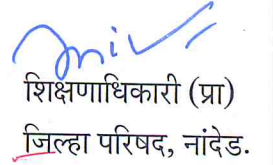 शिक्षणाधिकारी (प्रा)
जिल्हा परिषद, नांदेड.